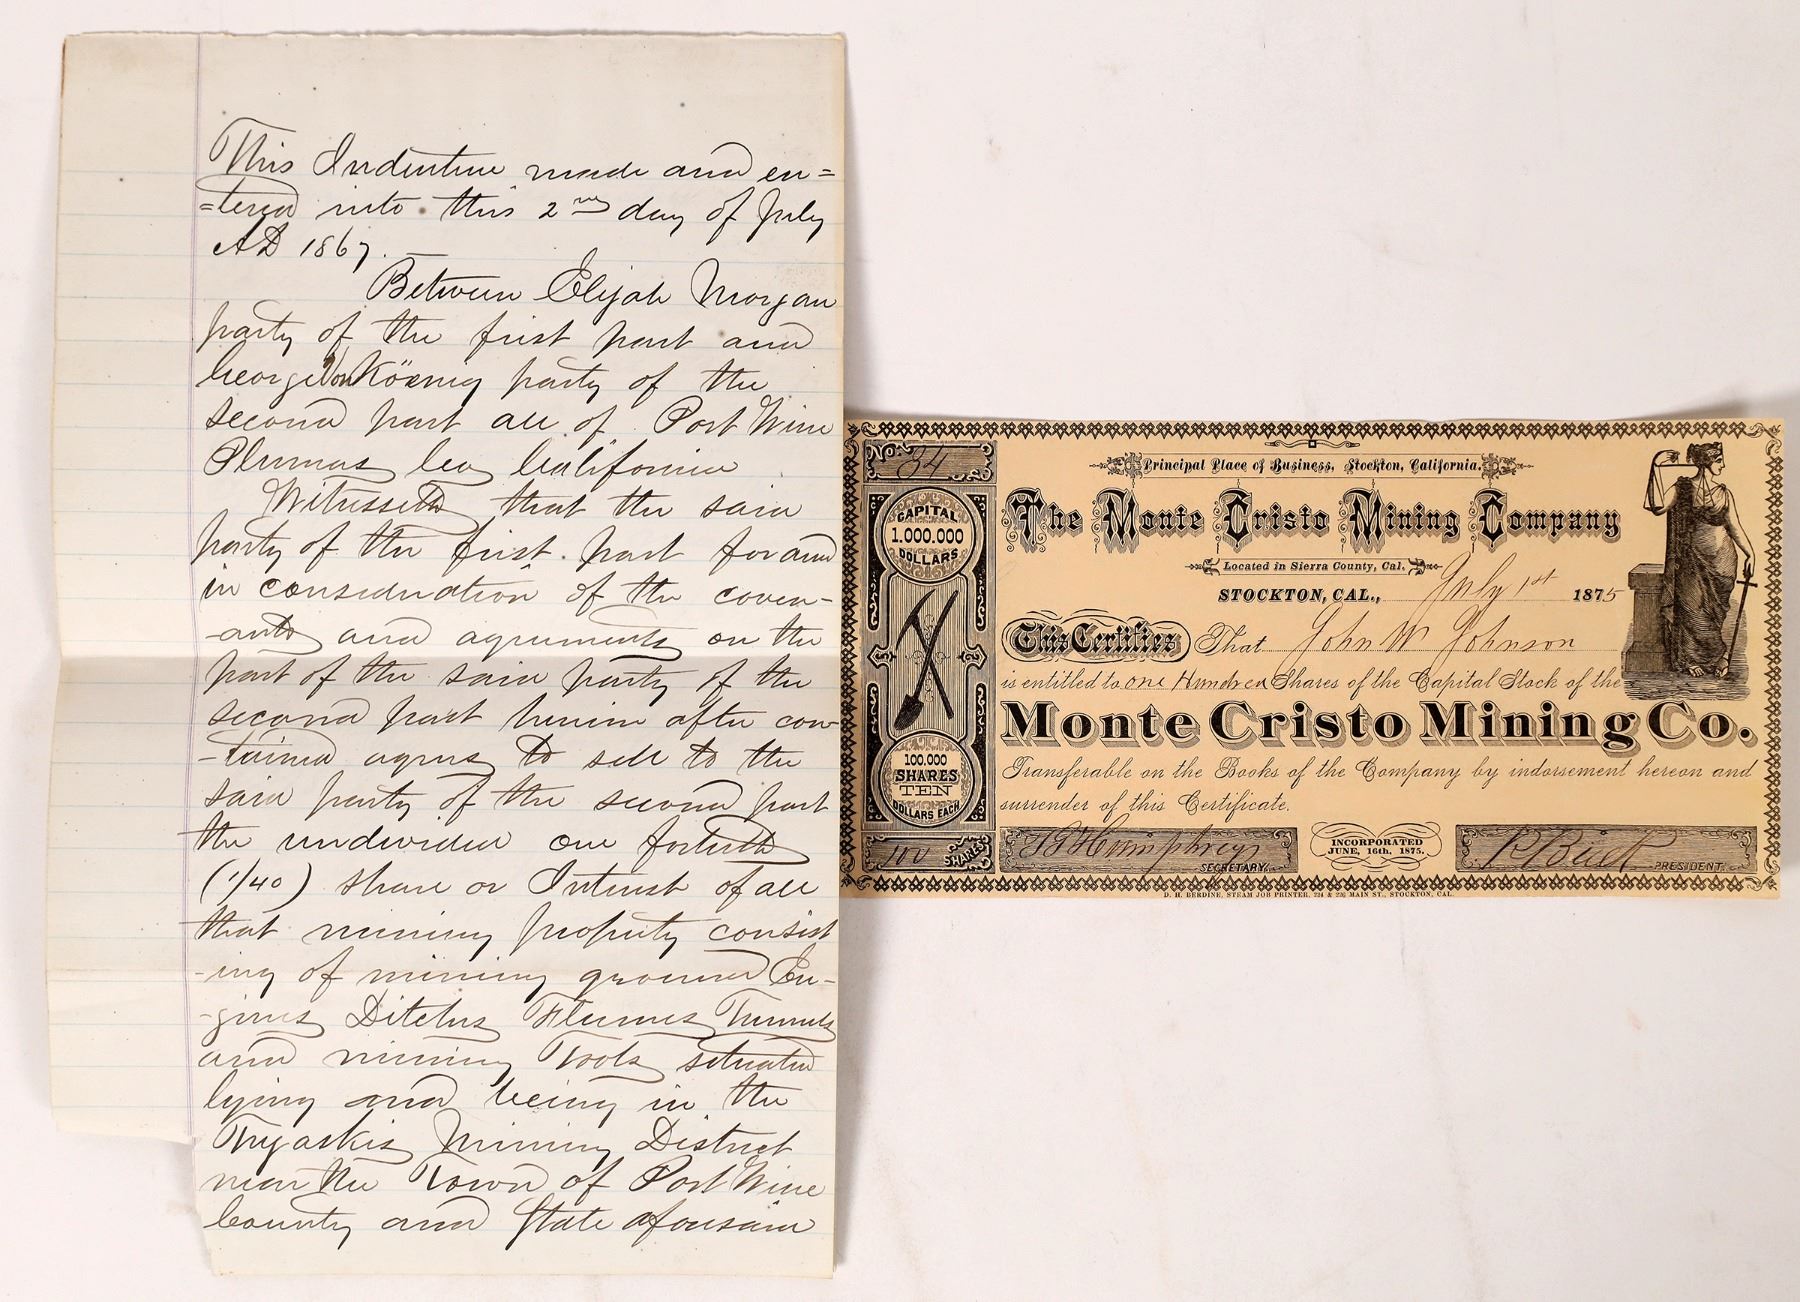 This Indenture made and en=
=tered into this 2nd day of July
AD 1867.
Between Elijah Morgan
party of the first part and
George Von Köenig party of the
second part all of Port Wine
Plumas Co California
Witnesseth that the said
party of the first part for and
in consideration of the coven-
-ants and agreements on the
part of the said party of the
second part herein after con-
-tained agrees to sell to the
said party of the second part
the undivided one fortieth
(1/40) share or Interest of all
that mining property consist
-ing of mining ground En-
-gines Ditches Flumes Tunnels
and mining Tools situated
lying and being in the
Mining District
near the Town of Port Wine
County and State aforesaid
No. 34
Principal Place of Business, Stockton, California.
CAPITAL
1.000.000
DOLLARS
The Monte Cristo Mining Company
Located in Sierra County, Cal.
STOCKTON, CAL., July 1st 1875
This Certifies That John W Johnson
is entitled to one Hundred Shares of the Capital Stock of the
Monte Cristo Mining Co.
100.000
SHARES
TEN
DOLLARS EACH
Transferable on the Books of the Company by indorsement hereon and
surrender of this Certificate.
100 SHARES
Humphreys
SECRETARY.
INCORPORATED
JUNE, 16th. 1875.
R Buck
PRESIDENT.
D. H. BERDINE, STEAM JOB PRINTER, 224 & 226 MAIN ST., STOCKTON, CAL.